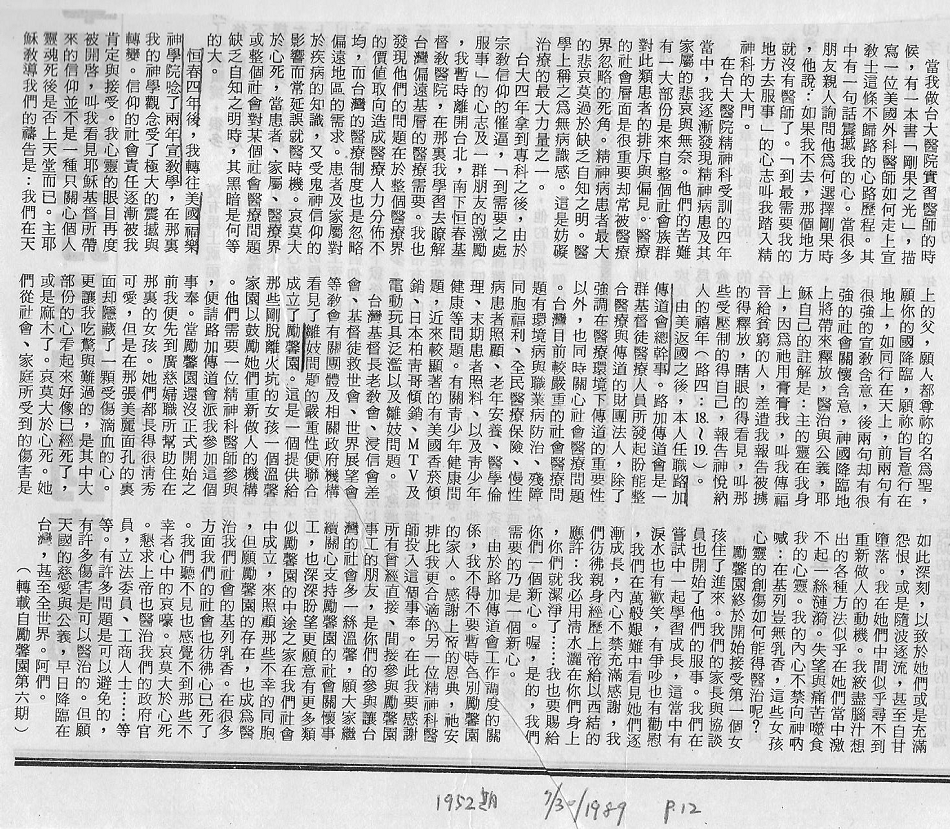 當我做台大醫院實習醫師的時
候，有一本書「剛果之光」，描
寫一位美國外科醫師如何走上宣
敎士這條不歸路的心路歷程。其
中有一句話震撼我的心。當很多
朋友親人詢問他為何選擇剛果時
，他說：如果我不去，那個地方
就沒有醫師了。「到最需要我的
地方去服事」的心志叫我踏入精
神科的大門。
在台大醫院精神科受訓的四年
當中，我逐漸發現精神病患及其
家屬的悲哀與無奈。他們的苦難
有一大部份是來自整個社會族群
對此類患者的排斥與偏見。醫療
的社會層面是很重要却常被醫療
界忽略的死角。精神病患者最大
的悲哀莫過於缺乏自知之明。醫
學上稱之為無病識感。這是妨礙
治療的最大力量之一。
台大四年拿到專科之後，由於
宗敎信仰的催逼，「到需要之處
服事」的心志及一群朋友的激勵
，我暫時離開台北，南下恒春基
督敎醫院，在那裏我學習去瞭解
台灣偏遠基層的醫療需要。我也
發現他們的問題在於整個醫療界
的價值取向造成醫療人力分佈不
均，而台灣的醫療制度也是忽略
偏遠地區的需求。患者及家屬對
於疾病的知識，又受鬼神信仰的
影響而常延誤就醫時機。哀莫大
於心死，當患者、家屬、醫療界
或整個社會對某個社會醫療問題
缺乏自知之明時，其黑暗是何等
的大。
恒春四年後，我轉往美國福樂
神學院唸了兩年宣敎學，在那裏
我的神學觀念受了極大的震撼與
轉變。信仰的社會責任逐漸被我
肯定與接受。我心靈的眼目再度
被開啓，叫我看見耶穌基督所帶
來的信仰並不是一種只關心個人
靈魂死後是否上天堂而已。主耶
穌敎導我們的禱告是：我們在天
上的父，願人都尊祢的名為聖，
願你的國降臨，願祢的旨意行在
地上，如同行在天上，前兩句有
很強的宣敎含意，後兩句却有很
強的社會關懷含意，神國降臨地
上將帶來釋放，醫治與公義，耶
穌自己的註解是：主的靈在我身
上，因為祂用膏膏我，叫我傳福
音給貧窮的人，差遣我報告被擄
的得釋放，瞎眼的得看見，叫那
些受壓制的得自己，報告神悅納
人的禧年（路四：18.～19.）。
由美返國之後，本人任職路加
傳道會總幹事。路加傳道會是一
群基督徒醫療人員所發起盼能整
合醫療與傳道的財團法人，除了
強調在醫療環境下傳道的重要性
以外，也同時關心社會醫療問題
。台灣目前較嚴重的社會醫療問
題有環境病與職業病防治、殘障
同胞福利、全民醫療保險、慢性
病患者照顧、老年安養、醫學倫
理、末期患者照料、以及青少年
健康等問題。有關青少年健康問
題，近來較顯著的有美國香菸傾
銷、日本柏青哥傾銷、ＭＴＶ及
電動玩具泛濫以及雛妓問題。
台灣基督長老敎會、浸信會差
會、基督徒救世會、世界展望會
等敎會有關團體及相關政府機構
看見了雛妓問題的嚴重性便聯合
成立了勵馨園。這是一個提供給
那些剛脫離火坑的女孩一個溫馨
家園以鼓勵她們重新做人的機構
。他們需要一位精神科醫師參與
，便請路加傳道會派我參加這個
事奉。當勵馨園還沒正式開始之
前我便先到廣慈婦職所幫助住在
那裏的女孩。她們都長得很淸秀
可愛，但是在那張美麗面孔的裏
面却隱藏了一顆受傷滴血的心。
更讓我吃驚與難過的，是其中大
部份的心看起來好像已經死了，
或是麻木了。哀莫大於心死。她
們從社會、家庭所受到的傷害是
如此深刻，以致於她們或是充滿
怨恨，或是隨波逐流，甚至自甘
墮落。我在她們中間似乎尋不到
重新做人的動機。我絞盡腦汁想
出的各種方法似乎在她們當中激
不起一絲漣漪。失望與痛苦噬食
我的心靈。我的內心不禁向神吶
喊：在基列豈無乳香，這些女孩
心靈的創傷如何能得醫治呢？
勵馨園終於開始接受第一個女
孩住了進來。我們的家長與協談
員也開始了他們的服事。我們在
嘗試中一起學習成長，這當中有
淚水也有歡笑，有爭吵也有勸慰
，我們在萬般艱難中看見她們逐
漸成長，內心不禁充滿感謝，我
們彷彿親身經歷上帝給以西結的
應許：我必用淸水灑在你們身上
，你們就潔淨了⋯⋯我也要賜給
你們一個新心。喔，是的，我們
需要的乃是一個新心。
由於路加傳道會工作調度的關
係，我不得不要暫時告別勵馨園
的家人。感謝上帝的恩典，祂安
排比我更合適的另一位精神科醫
師投入這個事奉。在此我要感謝
所有曾經直接、間接參與勵馨園
事工的朋友，是你們的參與讓台
灣的社會多一絲溫馨，願大家繼
續關心支持勵馨園的社會關懷事
工，也深深盼望更願意有更多類
似勵馨園的中途之家在我們社會
中成立，來照顧那些不幸的同胞
，但願勵馨園的存在，也成為醫
治我們社會的基列乳香。在很多
方面我們的社會也彷彿心已死了
。我們聽不見也感覺不到那些不
幸者心中的哀嚎。哀莫大於心死
。懇求上帝也醫治我們的政府官
員，立法委員、工商人士⋯⋯等
等。有許多問題是可以避免的，
有許多傷害是可以醫治的。但願
天國的慈愛與公義，早日降臨在
台灣，甚至全世界。阿們。
（轉載自勵馨園第六期）
1952期 7/30/1989 P.12